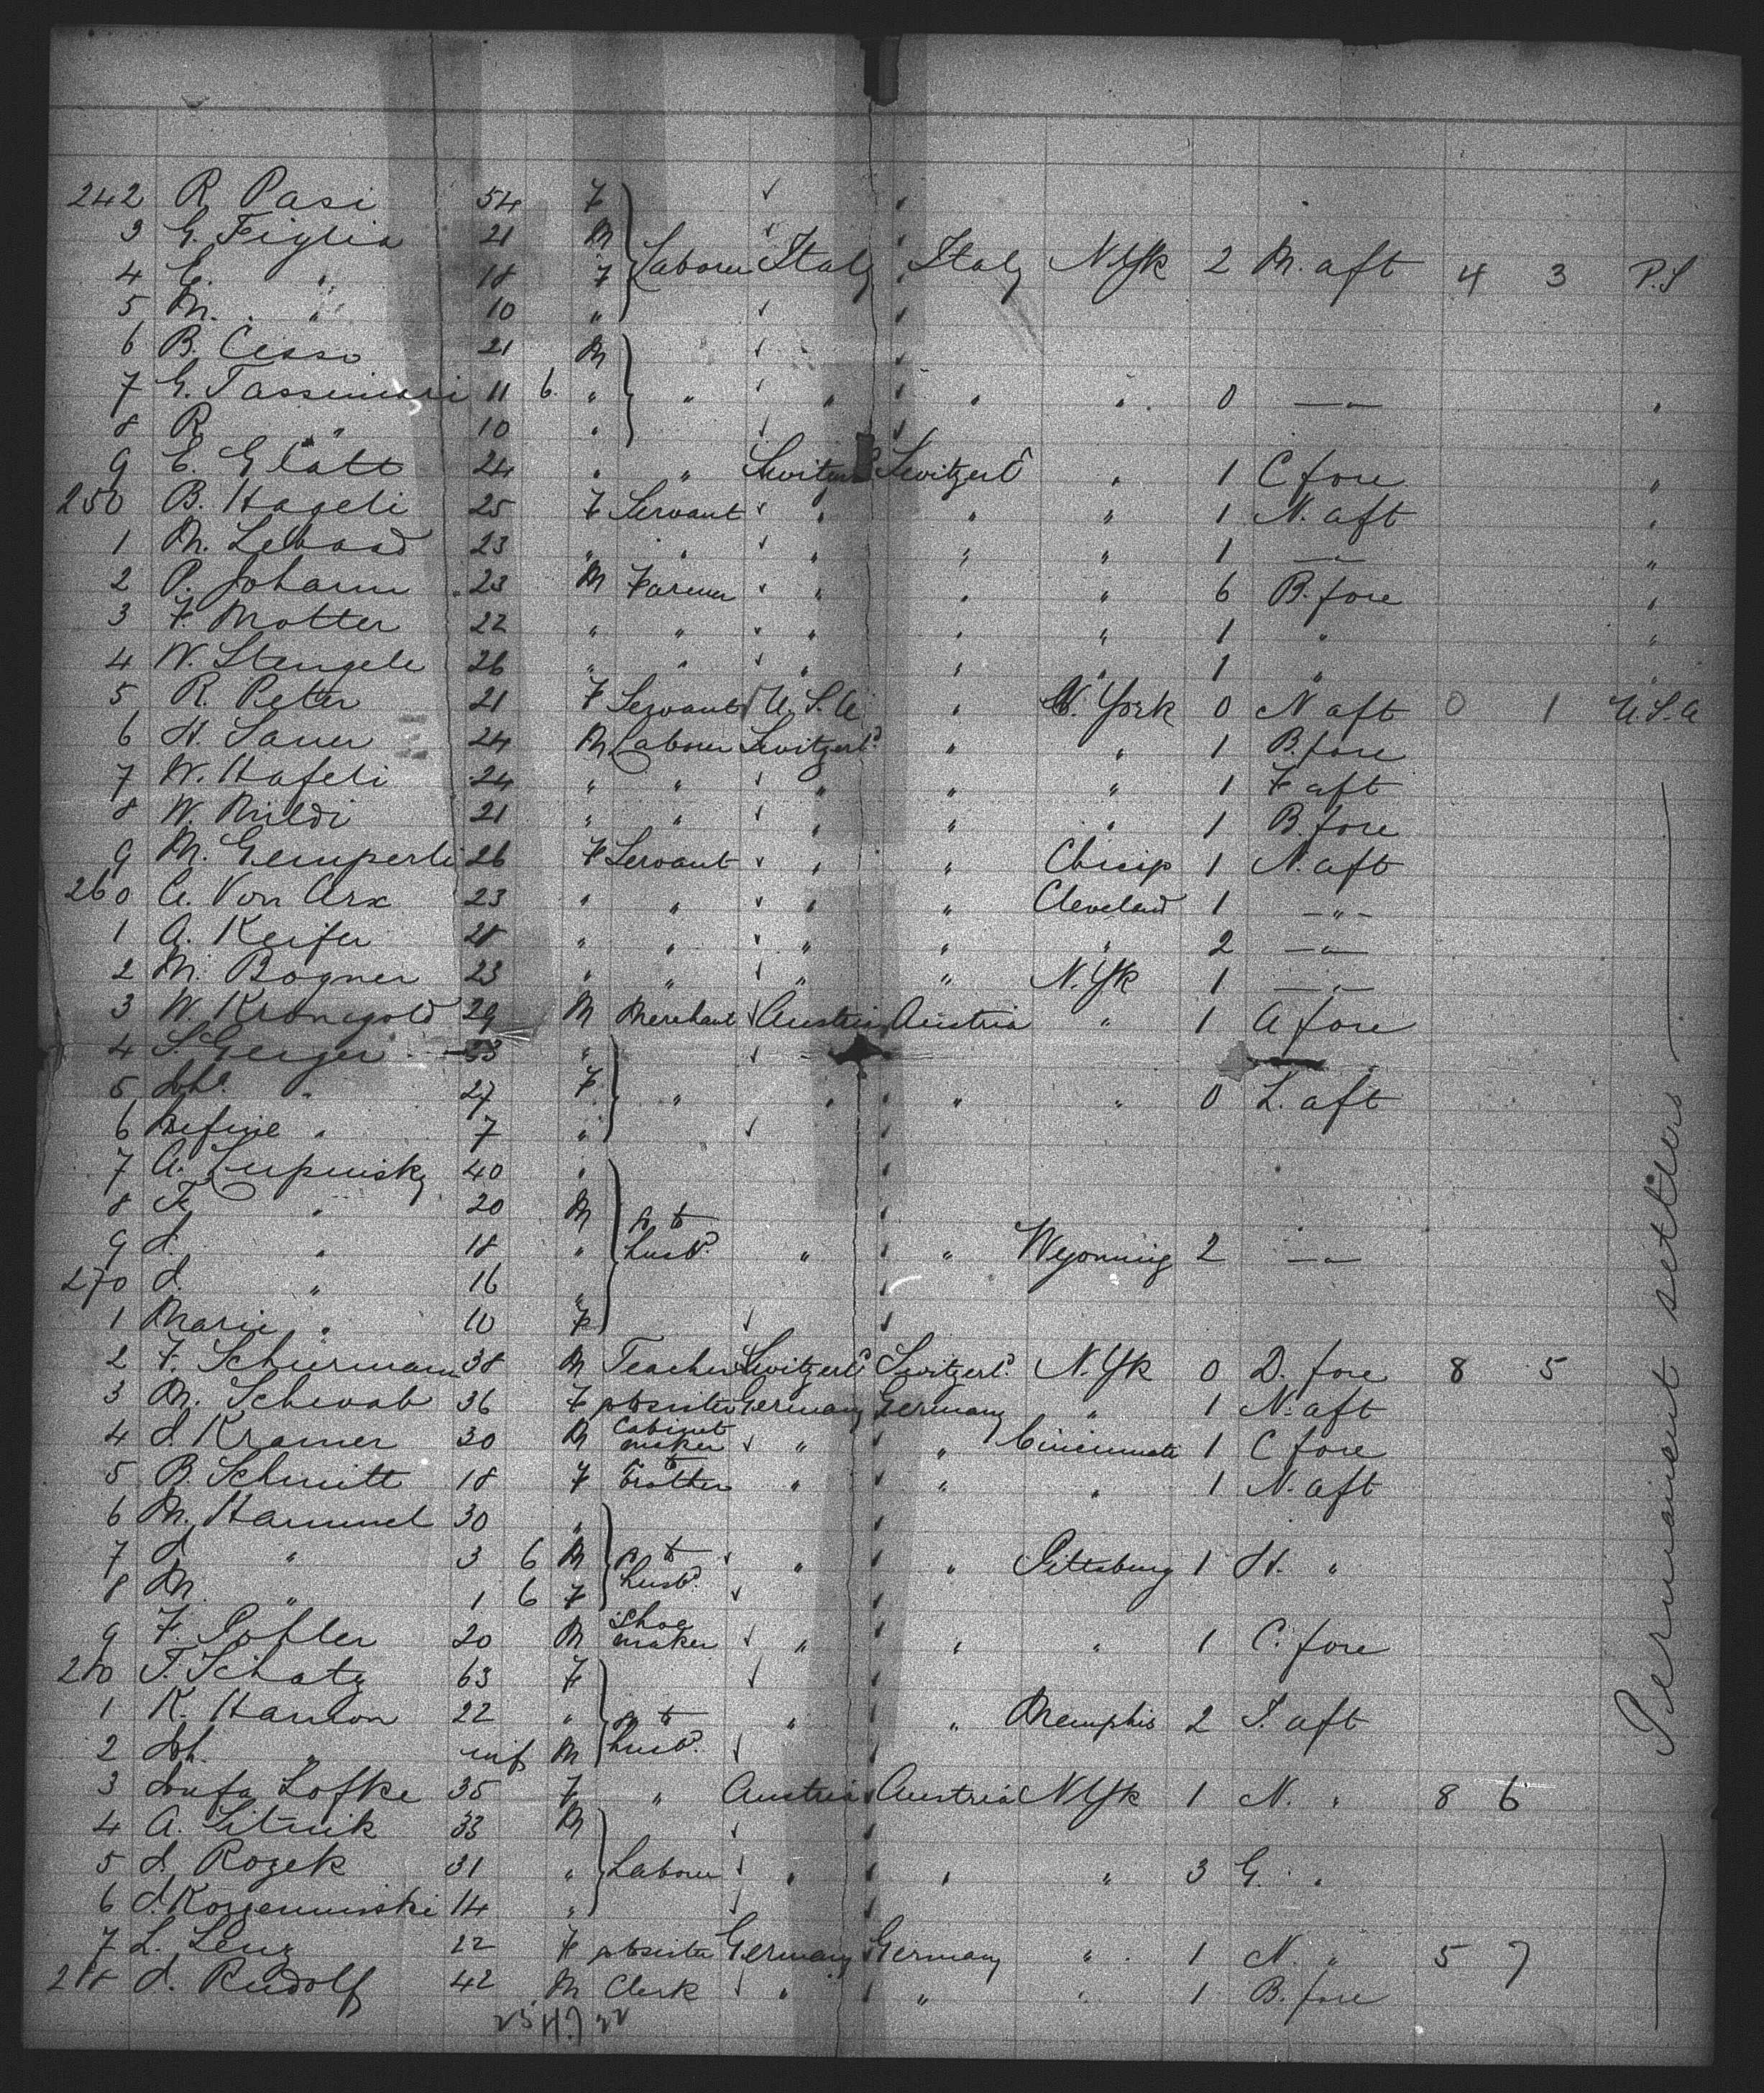 242 R. Pasi 54 F
3 G. Figlia 21 M
4 E. " 18 F Labourer Italy Italy N.Yk 2 M. aft 4 3 P.S
5 M. " 10 "
6 B. Cesso 21 M
7 G. Tassinari 11 6 " " " " " 0 — " — "
8 R. " 10 "
9 E. Glatt 24 " " Switzerl'd Switzerl'd " 1 C fore "
250 B. Hageli 25 F Servant " " " 1 N. aft "
1 M. 23 " " " " " 1 — " — "
2 P. Johann 23 M Farmer " " " 6 B. fore "
3 F. Motter 22 " " " " " 1 " "
4 W. Stengele 26 " " " " " 1 " "
5 R. Peter 21 F Servant U.S.A " N. York 0 N aft 0 1 U.S.A
6 H. Sauer 24 M Labourer Switzerl'd " " 1 B. fore
7 W. Hafeli 24 " " " " " 1 F aft
8 W. Mildi 21 " " " " " 1 B. fore
9 M. Gemperli 26 F Servant " " 1 N. aft
260 A. Von Arx 23 " " " " Cleveland 1 — " —
1 A. Keifer 28 " " " " " 2 — " —
2 M. Bogner 23 " " " " N.Yk 1 — " —
3 W. Krongold 29 M Merchant Austria Austria " 1 A fore
4 S. Geiger 33 "
5 " 27 F " " " " 0 L. aft
6 " 7 "
7 A. Lupinsky 40 "
8 F. " 20 M
9 J. " 18 " p. to husb'd " " Wyoming 2 — " —
270 J. " 16 "
1 Marie " 10 F
2 F. Schurmann 38 M Teacher Switzerl'd Switzerl'd N.Yk 0 D. fore 8 5
3 M. Schwab 36 F p to sister Germany Germany " 1 N. aft
4 J. Kramer 30 M Cabinet maker " " Cincinnati 1 C fore
5 B. Schmitt 18 F to brother " " " 1 N. aft
6 M. Hammel 30 "
7 J. " 3 6 M p. to husb'd " " Pittsburg 1 H. "
8 M. " 1 6 F
9 F. Pohler 20 M Shoe maker " " " 1 C. fore
280 T. Schatz 63 F
1 K. Hanlon 22 " p. to husb'd " " Memphis 2 I. aft
2 Joh. " inf M
3 Lofke 35 F " Austria Austria N.Yk 1 N. " 8 6
4 A. Sitnik 33 M
5 J. Rozek 31 " Labourer " " " 3 G. "
6 J. 14 "
7 L. Lenz 22 F p to sister Germany Germany " 1 N. " 5 7
288 J. Rudolf 42 M Clerk " " " 1 B. fore
Permanent settlers